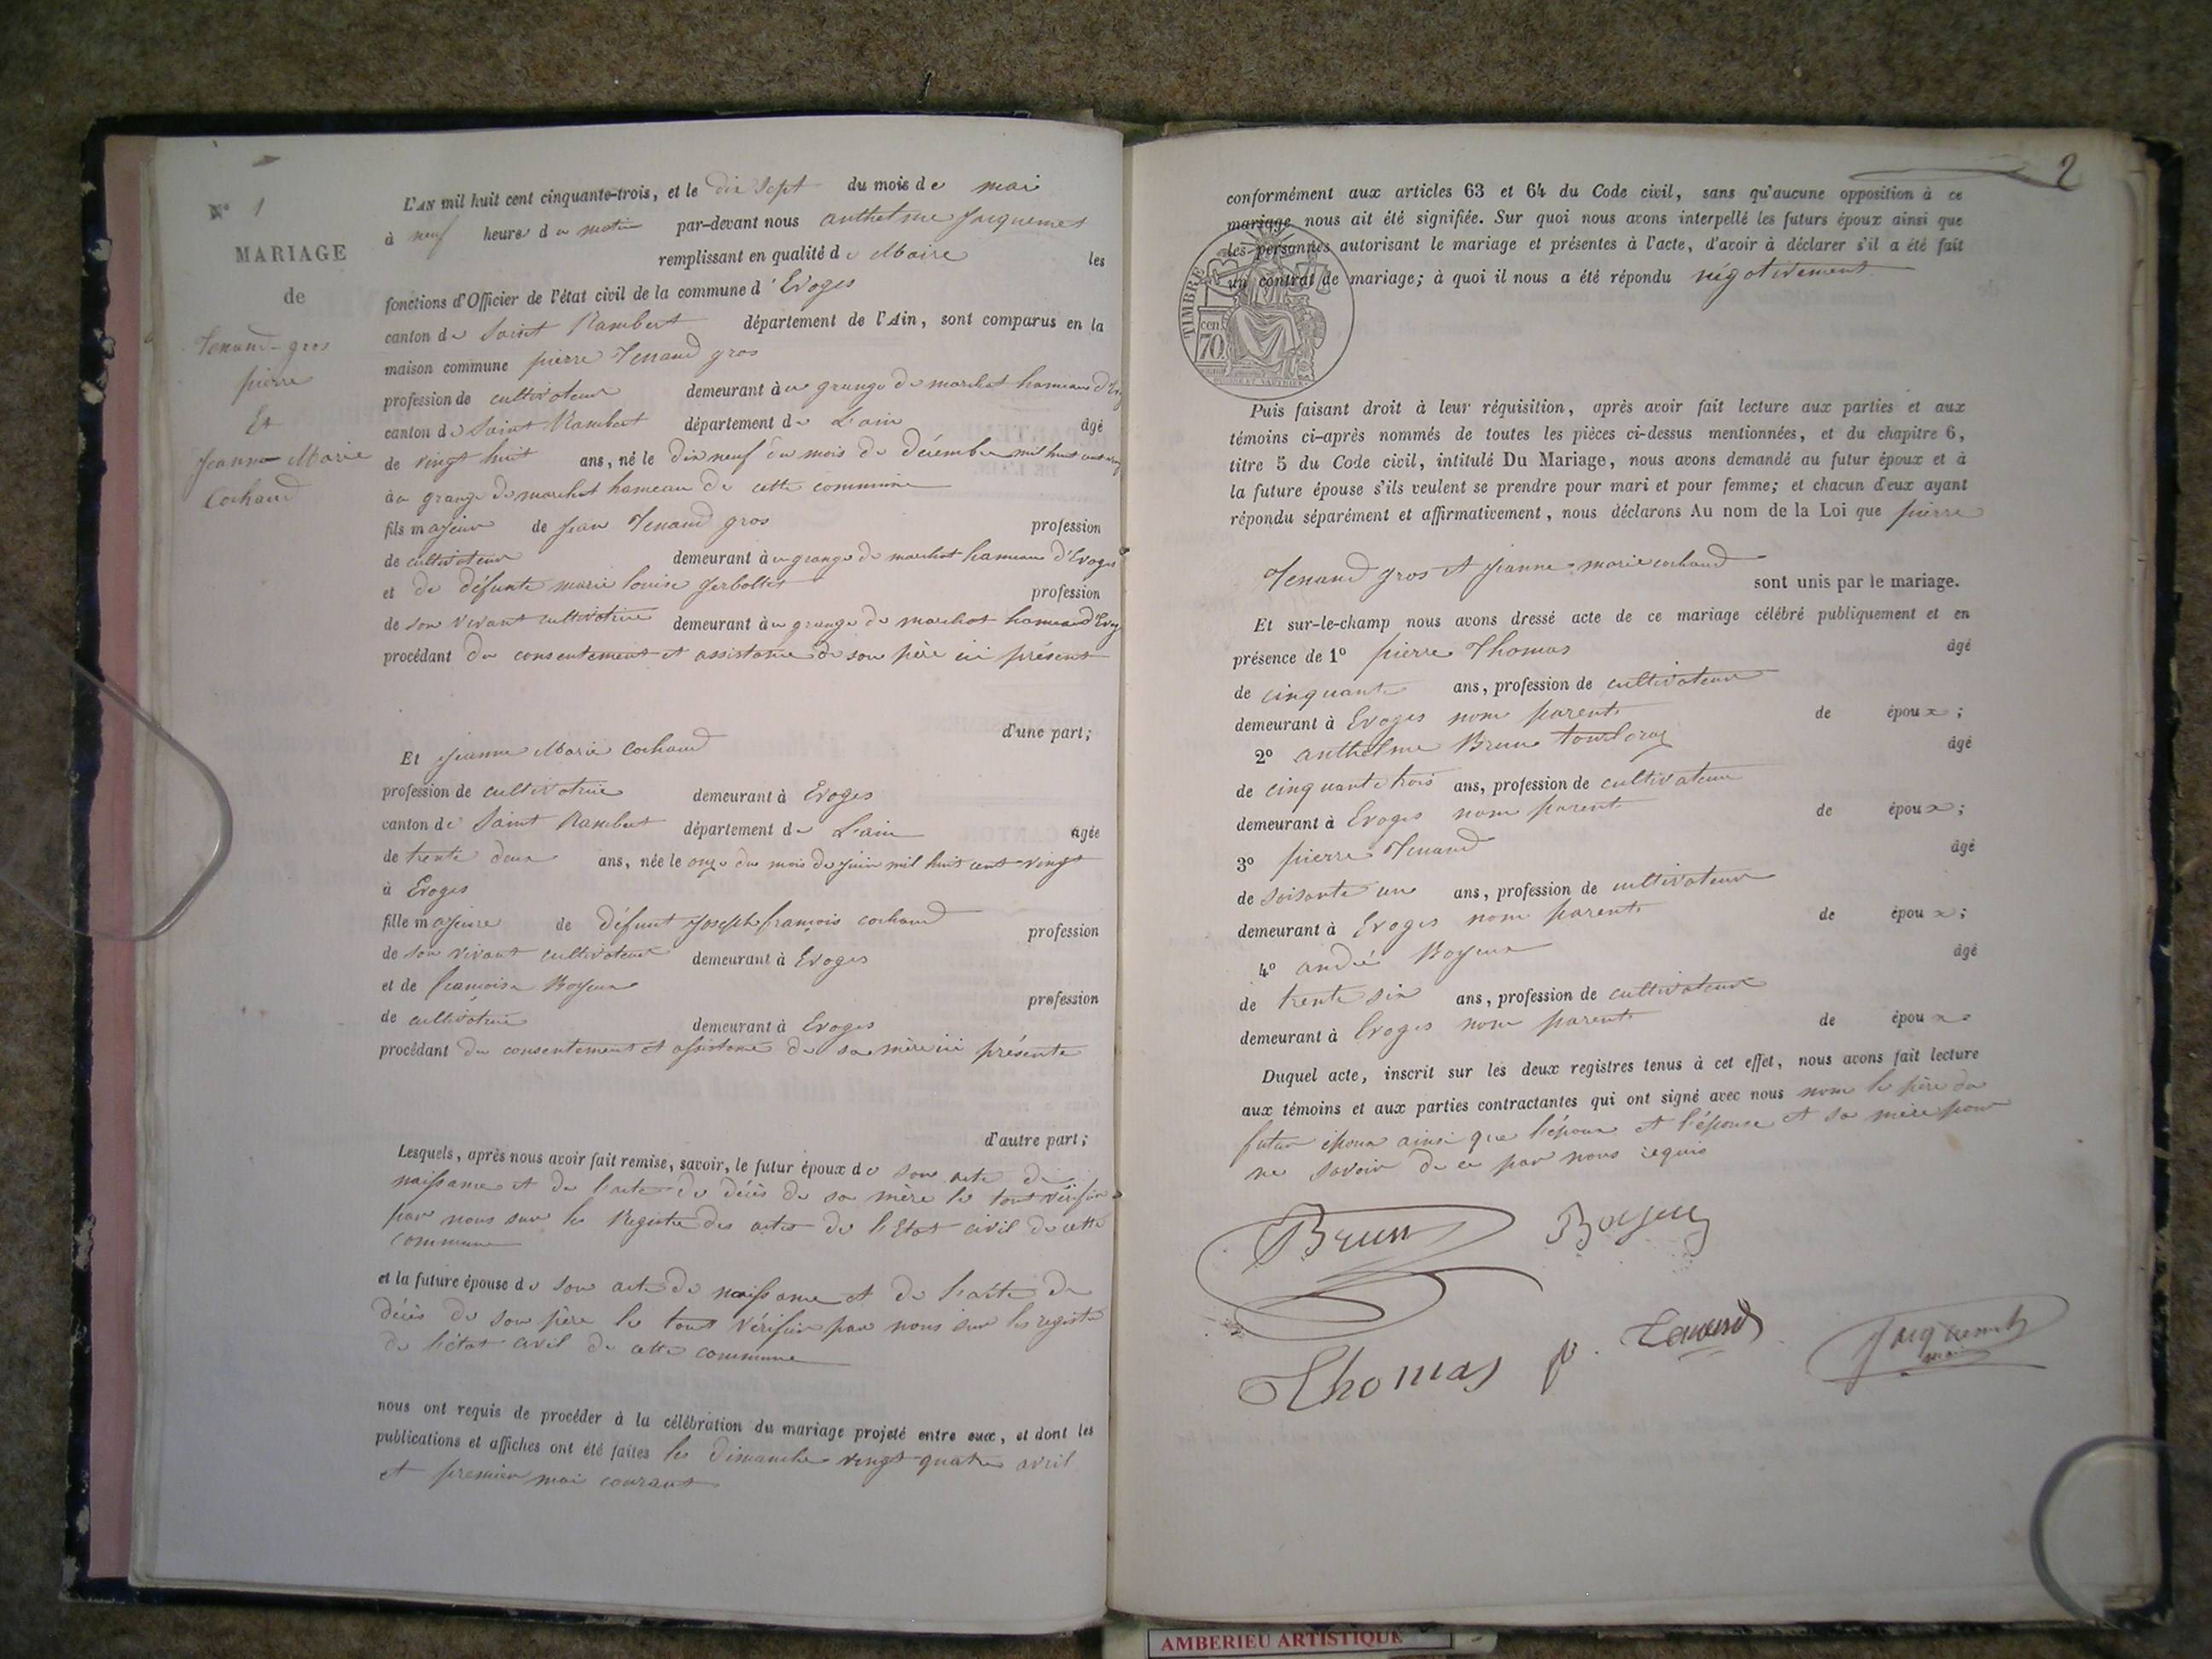 N° 1
MARIAGE
de
Tenand-gros
pierre
Et
Jeanne Marie
Cochand
L'AN mil huit cent cinquante-trois, et le dix sept du mois de mai
à neuf heures du matin par-devant nous anthelme Jacquemet
remplissant en qualité de Maire les
fonctions d'Officier de l'état civil de la commune d'Evoges
canton de Saint Rambert département de l'Ain, sont comparus en la
maison commune pierre Tenand gros
profession de cultivateur demeurant à la grange du marchat hameau
canton de Saint Rambert département de L'ain âgé
de vingt huit ans, né le dix neuf du mois de décembre mil huit cent
à la grange du marchat hameau de cette commune
fils majeur de jean Tenand gros profession
de cultivateur demeurant à la grange du marchat hameau d'Evoges
et de défunte marie louise profession
de son vivant cultivatrice demeurant à la grange du marchat hameau
procédant du consentement et assistance de son père ici présent
d'une part;
Et Jeanne Marie Cochand
profession de cultivatrice demeurant à Evoges
canton de Saint Rambert département de L'ain agée
de trente deux ans, née le onze du mois de juin mil huit cent vingt
à Evoges
fille majeure de défunt joseph françois cochand profession
de son vivant cultivateur demeurant à Evoges
et de françoise Boyeux profession
de cultivatrice demeurant à Evoges
procédant du consentement et assistance de sa mère ici présente
d'autre part;
Lesquels, après nous avoir fait remise, savoir, le futur époux de son acte de
naissance et de l'acte de décès de sa mère le tout vérifié
par nous sur le Registre des actes de l'Etat civil de cette
commune
et la future épouse de son acte de naissance et de l'acte de
décès de son père le tout vérifié par nous sur les registre
de l'état civil de cette commune
nous ont requis de procéder à la célébration du mariage projeté entre eux, et dont les
publications et affiches ont été faites les dimanche vingt-quatre avril
et premier mai courant
2
conformément aux articles 63 et 64 du Code civil, sans qu'aucune opposition à ce
mariage nous ait été signifiée. Sur quoi nous avons interpellé les futurs époux ainsi que
les personnes autorisant le mariage et présentes à l'acte, d'avoir à déclarer s'il a été fait
un contrat de mariage; à quoi il nous a été répondu négativement
TIMBRE
cen.
70
Puis faisant droit à leur réquisition, après avoir fait lecture aux parties et aux
témoins ci-après nommés de toutes les pièces ci-dessus mentionnées, et du chapitre 6,
titre 5 du Code civil, intitulé Du Mariage, nous avons demandé au futur époux et à
la future épouse s'ils veulent se prendre pour mari et pour femme; et chacun d'eux ayant
répondu séparément et affirmativement, nous déclarons Au nom de la Loi que pierre
Tenand gros et jeanne marie cochand
sont unis par le mariage.
Et sur-le-champ nous avons dressé acte de ce mariage célébré publiquement et en
présence de 1° pierre Thomas âgé
de cinquante ans, profession de cultivateur
demeurant à Evoges non parent de époux;
2° anthelme Brun âgé
de cinquante trois ans, profession de cultivateur
demeurant à Evoges non parent de époux;
3° pierre Tenand âgé
de soisante un ans, profession de cultivateur
demeurant à Evoges non parent de époux;
4° andré Boyeux âgé
de trente six ans, profession de cultivateur
demeurant à Evoges non parent de époux
Duquel acte, inscrit sur les deux registres tenus à cet effet, nous avons fait lecture
aux témoins et aux parties contractantes qui ont signé avec nous non le père du
futur époux ainsi que l'époux et l'épouse et sa mère pour
ne savoir de ce par nous requis
Brun Boyeux
Thomas p. Tenand Jacquemet
maire
AMBERIEU ARTISTIQUE